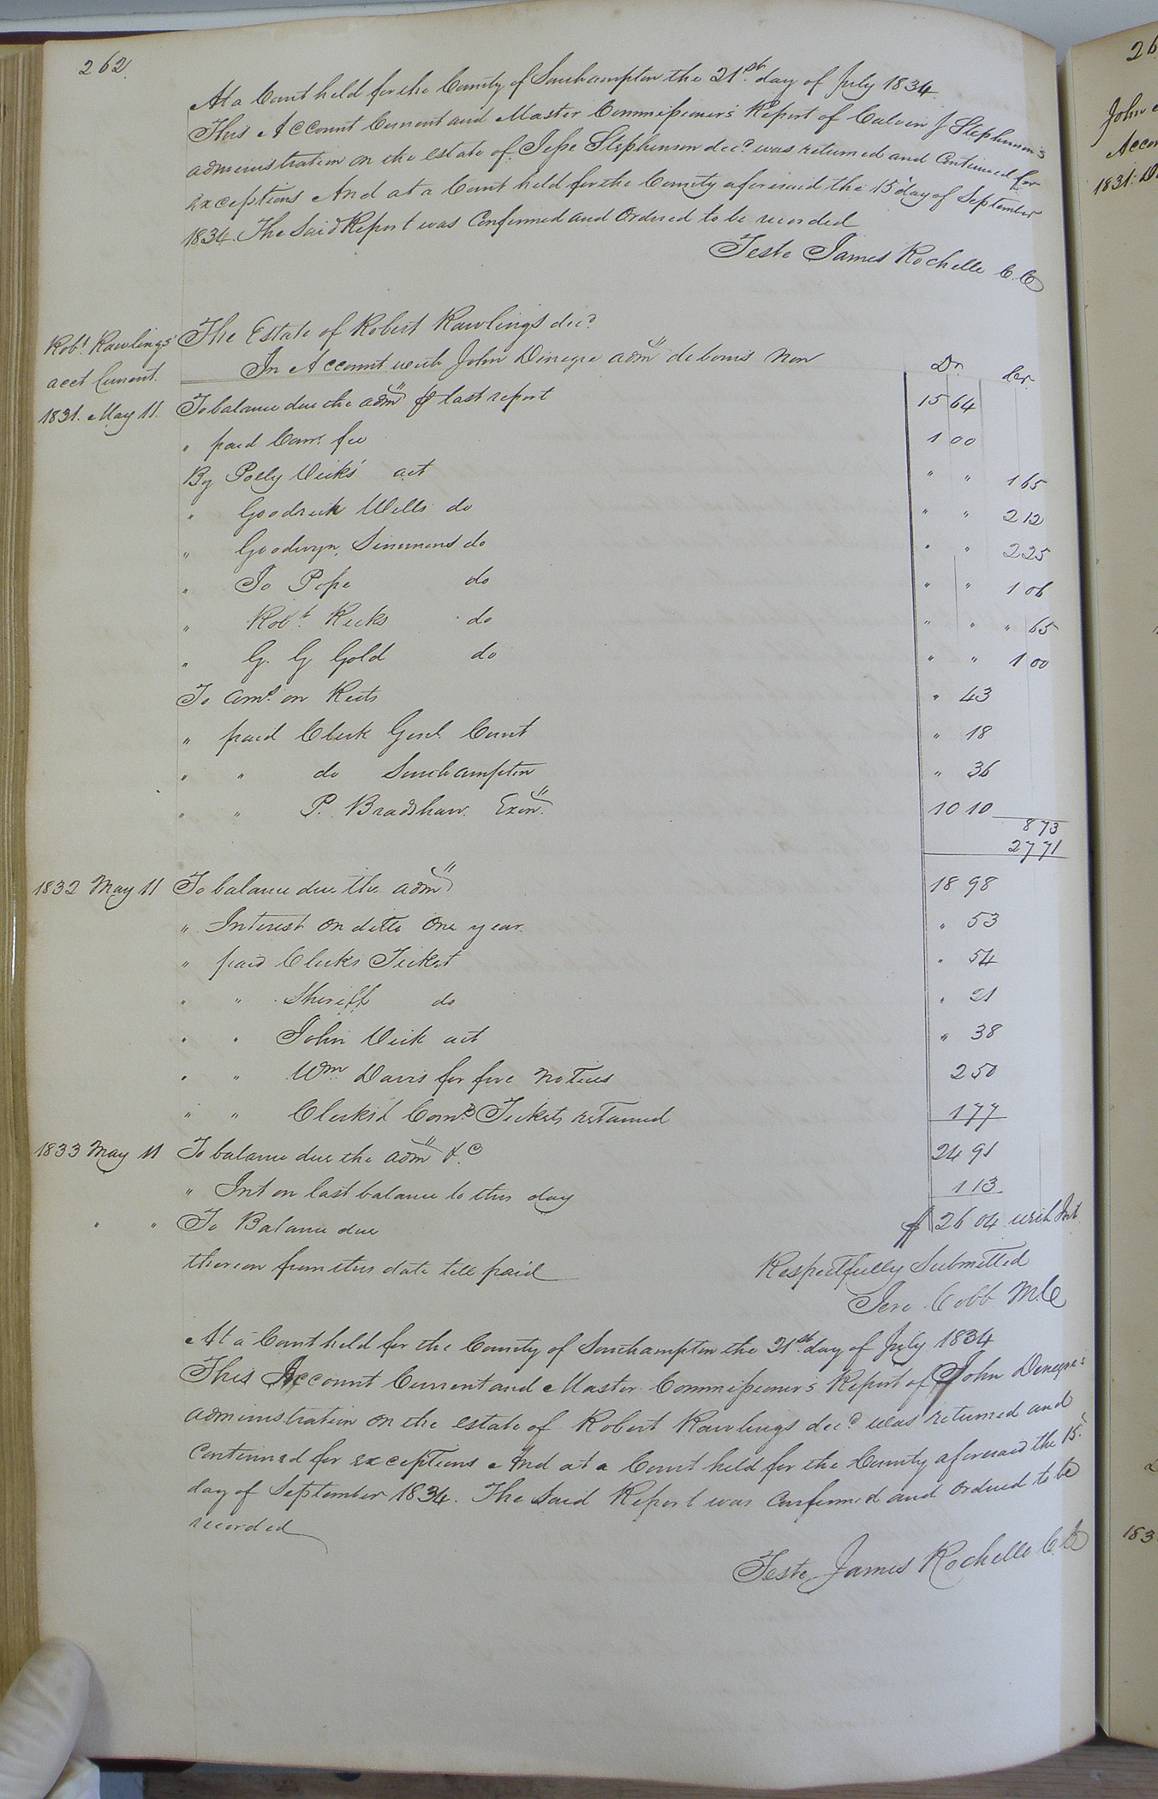 262.
At a Court held for the County of Southampton the 21st. day of July 1834.
This Account Current and Master Commissioner's Report of Calvin J Stephenson's
administration on the estate of Jesse Stephenson decd. was returned and Continued for
exceptions And at a Court held for the County aforesaid the 15 day of September
1834. The Said Report was Confirmed and Ordered to be recorded
Teste James Rochelle C. C
Robt. Rawlings
acct Current.
The Estate of Robert Rawlings decd.
In Account with John Denegre admr. debonis non Dr. Cr.
1831. May 11. To balance due the admr. last report 15 64
" paid Com. fee 1 00
By Polly Vick's act " " 1 65
" Goodrich Wells do " " 2 12
" Goodwyn Simmons do " " 2 25
" Jo Pope do " " 1 06
" Robt. Ricks do " " " 65
" G. G Gold do " " 1 00
To Coms. on Rects " 43
" paid Clerk Genl. Court " 18
" " do Southampton " 36
" " P. Bradshaw. Exor. 10 10
8 73
27 71
1832 May 11 To balance due the admr. 18 98
" Interest on ditto One year " 53
" paid Clerks Ticket " 54
" " Sheriff do " 21
" " John Vick act " 38
" " Wm Davis for five notices 2 50
" " Clerks & Coms. Tickets returned 1 77
1833 May 11 To balance due the admr. &c 24 91
" Int on last balance to this day 1 13
" " To Balance due $ 26 04 with Int
thereon from this date till paid Respectfully Submitted
Jere Cobb M.C
At a Court held for the County of Southampton the 21st. day of July 1834
This Account Current and Master Commissioner's Report of John Denegre's
administration on the estate of Robert Rawlings decd. was returned and
Continued for exceptions And at a Court held for the County aforesaid the 15.
day of September 1834. The Said Report was Confirmed and Ordered to be
recorded
Teste James Rochelle C. C
26
John
Accou
1831. D
183